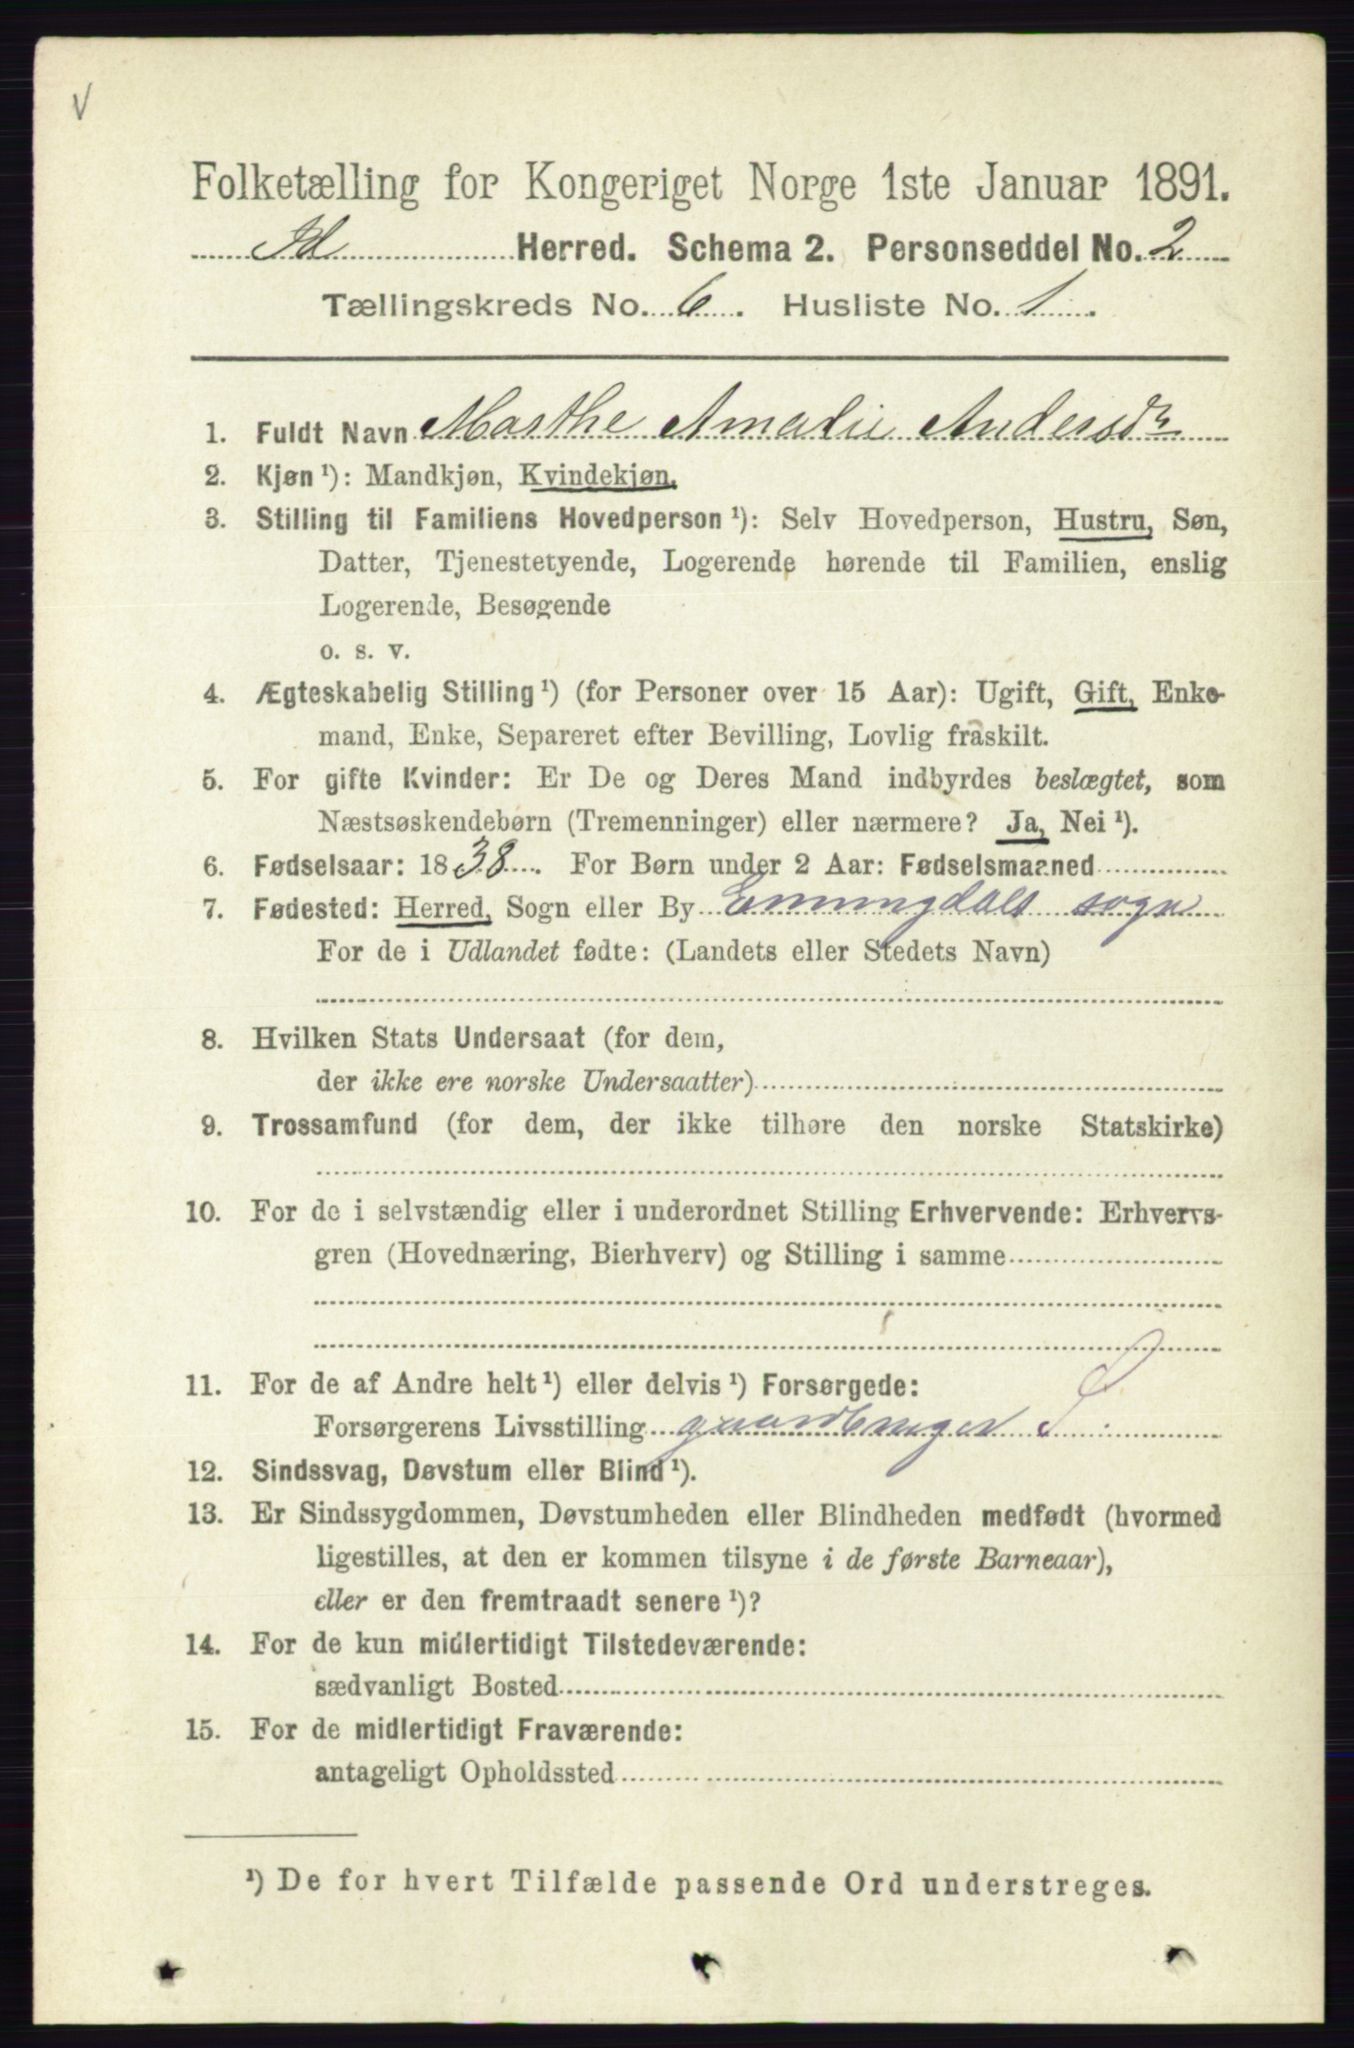 V
Folketælling for Kongeriget Norge 1ste Januar 1891.
Id Herred. Schema 2. Personseddel No. 2
Tællingskreds No. 6. Husliste No. 1.
1. Fuldt Navn Marthe Amalie Andersdr
2. Kjøn ¹): Mandkjøn, Kvindekjøn.
3. Stilling til Familiens Hovedperson ¹): Selv Hovedperson, Hustru, Søn,
Datter, Tjenestetyende, Logerende hørende til Familien, enslig
Logerende, Besøgende
o. s. v.
4. Ægteskabelig Stilling ¹) (for Personer over 15 Aar): Ugift, Gift, Enke-
mand, Enke, Separeret efter Bevilling, Lovlig fraskilt.
5. For gifte Kvinder: Er De og Deres Mand indbyrdes beslægtet, som
Næstsøskendebørn (Tremenninger) eller nærmere? Ja, Nei ¹).
6. Fødselsaar: 1838. For Børn under 2 Aar: Fødselsmaaned
7. Fødested: Herred, Sogn eller By Enningdals sogn
For de i Udlandet fødte: (Landets eller Stedets Navn)
8. Hvilken Stats Undersaat (for dem,
der ikke ere norske Undersaatter)
9. Trossamfund (for dem, der ikke tilhøre den norske Statskirke)
10. For de i selvstændig eller i underordnet Stilling Erhvervende: Erhvervs-
gren (Hovednæring, Bierhverv) og Stilling i samme
11. For de af Andre helt ¹) eller delvis ¹) Forsørgede:
Forsørgerens Livsstilling gaardbruger S
12. Sindssvag, Døvstum eller Blind ¹).
13. Er Sindssygdommen, Døvstumheden eller Blindheden medfødt (hvormed
ligestilles, at den er kommen tilsyne i de første Barneaar),
eller er den fremtraadt senere ¹)?
14. For de kun midlertidigt Tilstedeværende:
sædvanligt Bosted
15. For de midlertidigt Fraværende:
antageligt Opholdssted
¹) De for hvert Tilfælde passende Ord understreges.